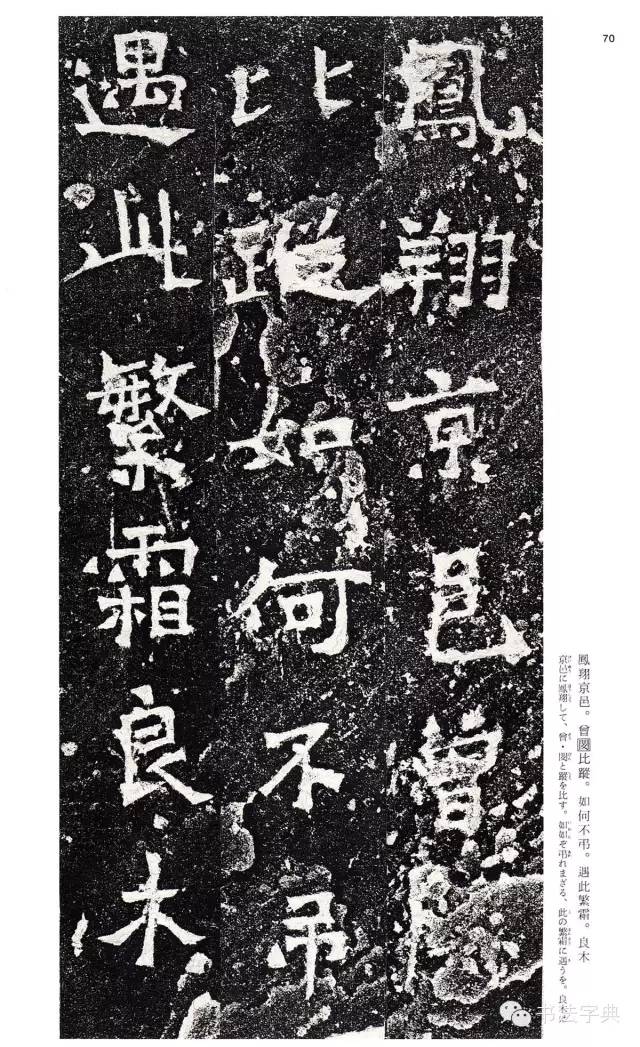 70
鳳翔京邑曾閔
比蹤如何不弔
遇此繁霜良木
鳳翔京邑。曾閔比蹤。如何不弔。遇此繁霜。良木
京邑に鳳翔して、曾・閔と蹤を比す。如何ぞ弔れまざる、此の繁霜に遇うを。良木
书法字典